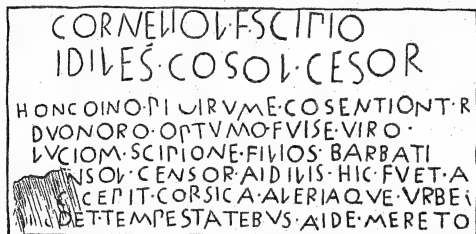 CORNELIO·L·F·SCIPIO
IDILES·COSOL·CESOR
HONCOINO·PLOIRVME·COSENTIONT·R
DVONORO·OPTVMO·FVISE·VIRO·
LVCIOM·SCIPIONE·FILIOS·BARBATI
NSOL·CENSOR·AIDILIS·HIC·FVET·A
CEPIT·CORSICA·ALERIAQVE·VRBE·
DET·TEMPESTATEBVS·AIDE·MERETO